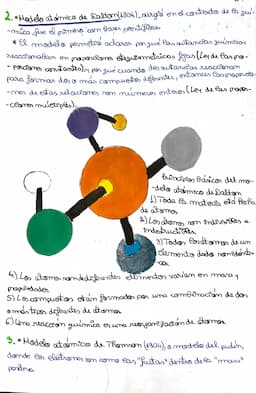 2. • Modelo atómico de Dalton (1804), surgió en el contexto de la quí-
mica, fue el primero con bases científicas.
* El modelo permitió aclarar por qué las sustancias químicas
reaccionaban en proporciones estequiométricas fijas (Ley de las pro-
porciones constantes), por qué cuando dos sustancias reaccionan
para formar dos o más compuestos diferentes, entonces las proporcio-
nes de estas relaciones son números enteros (Ley de las propor-
ciones múltiples).
Principios básicos del mo-
delo atómico de Dalton
1) Toda la materia está hecha
de átomos
2) Los átomos son indivisibles e
indestructibles
3) Todos los átomos de un
elemento dado son idénti-
cos
4) Los átomos de diferentes elementos varían en masa y
propiedades
5) Los compuestos están formados por una combinación de dos
o más tipos diferentes de átomos
6) Una reacción química es una reorganización de átomos
3. • Modelo atómico de Thomson (1904), o modelo del pudín,
donde los electrones son como las "frutas" dentro de la "masa"
positiva.